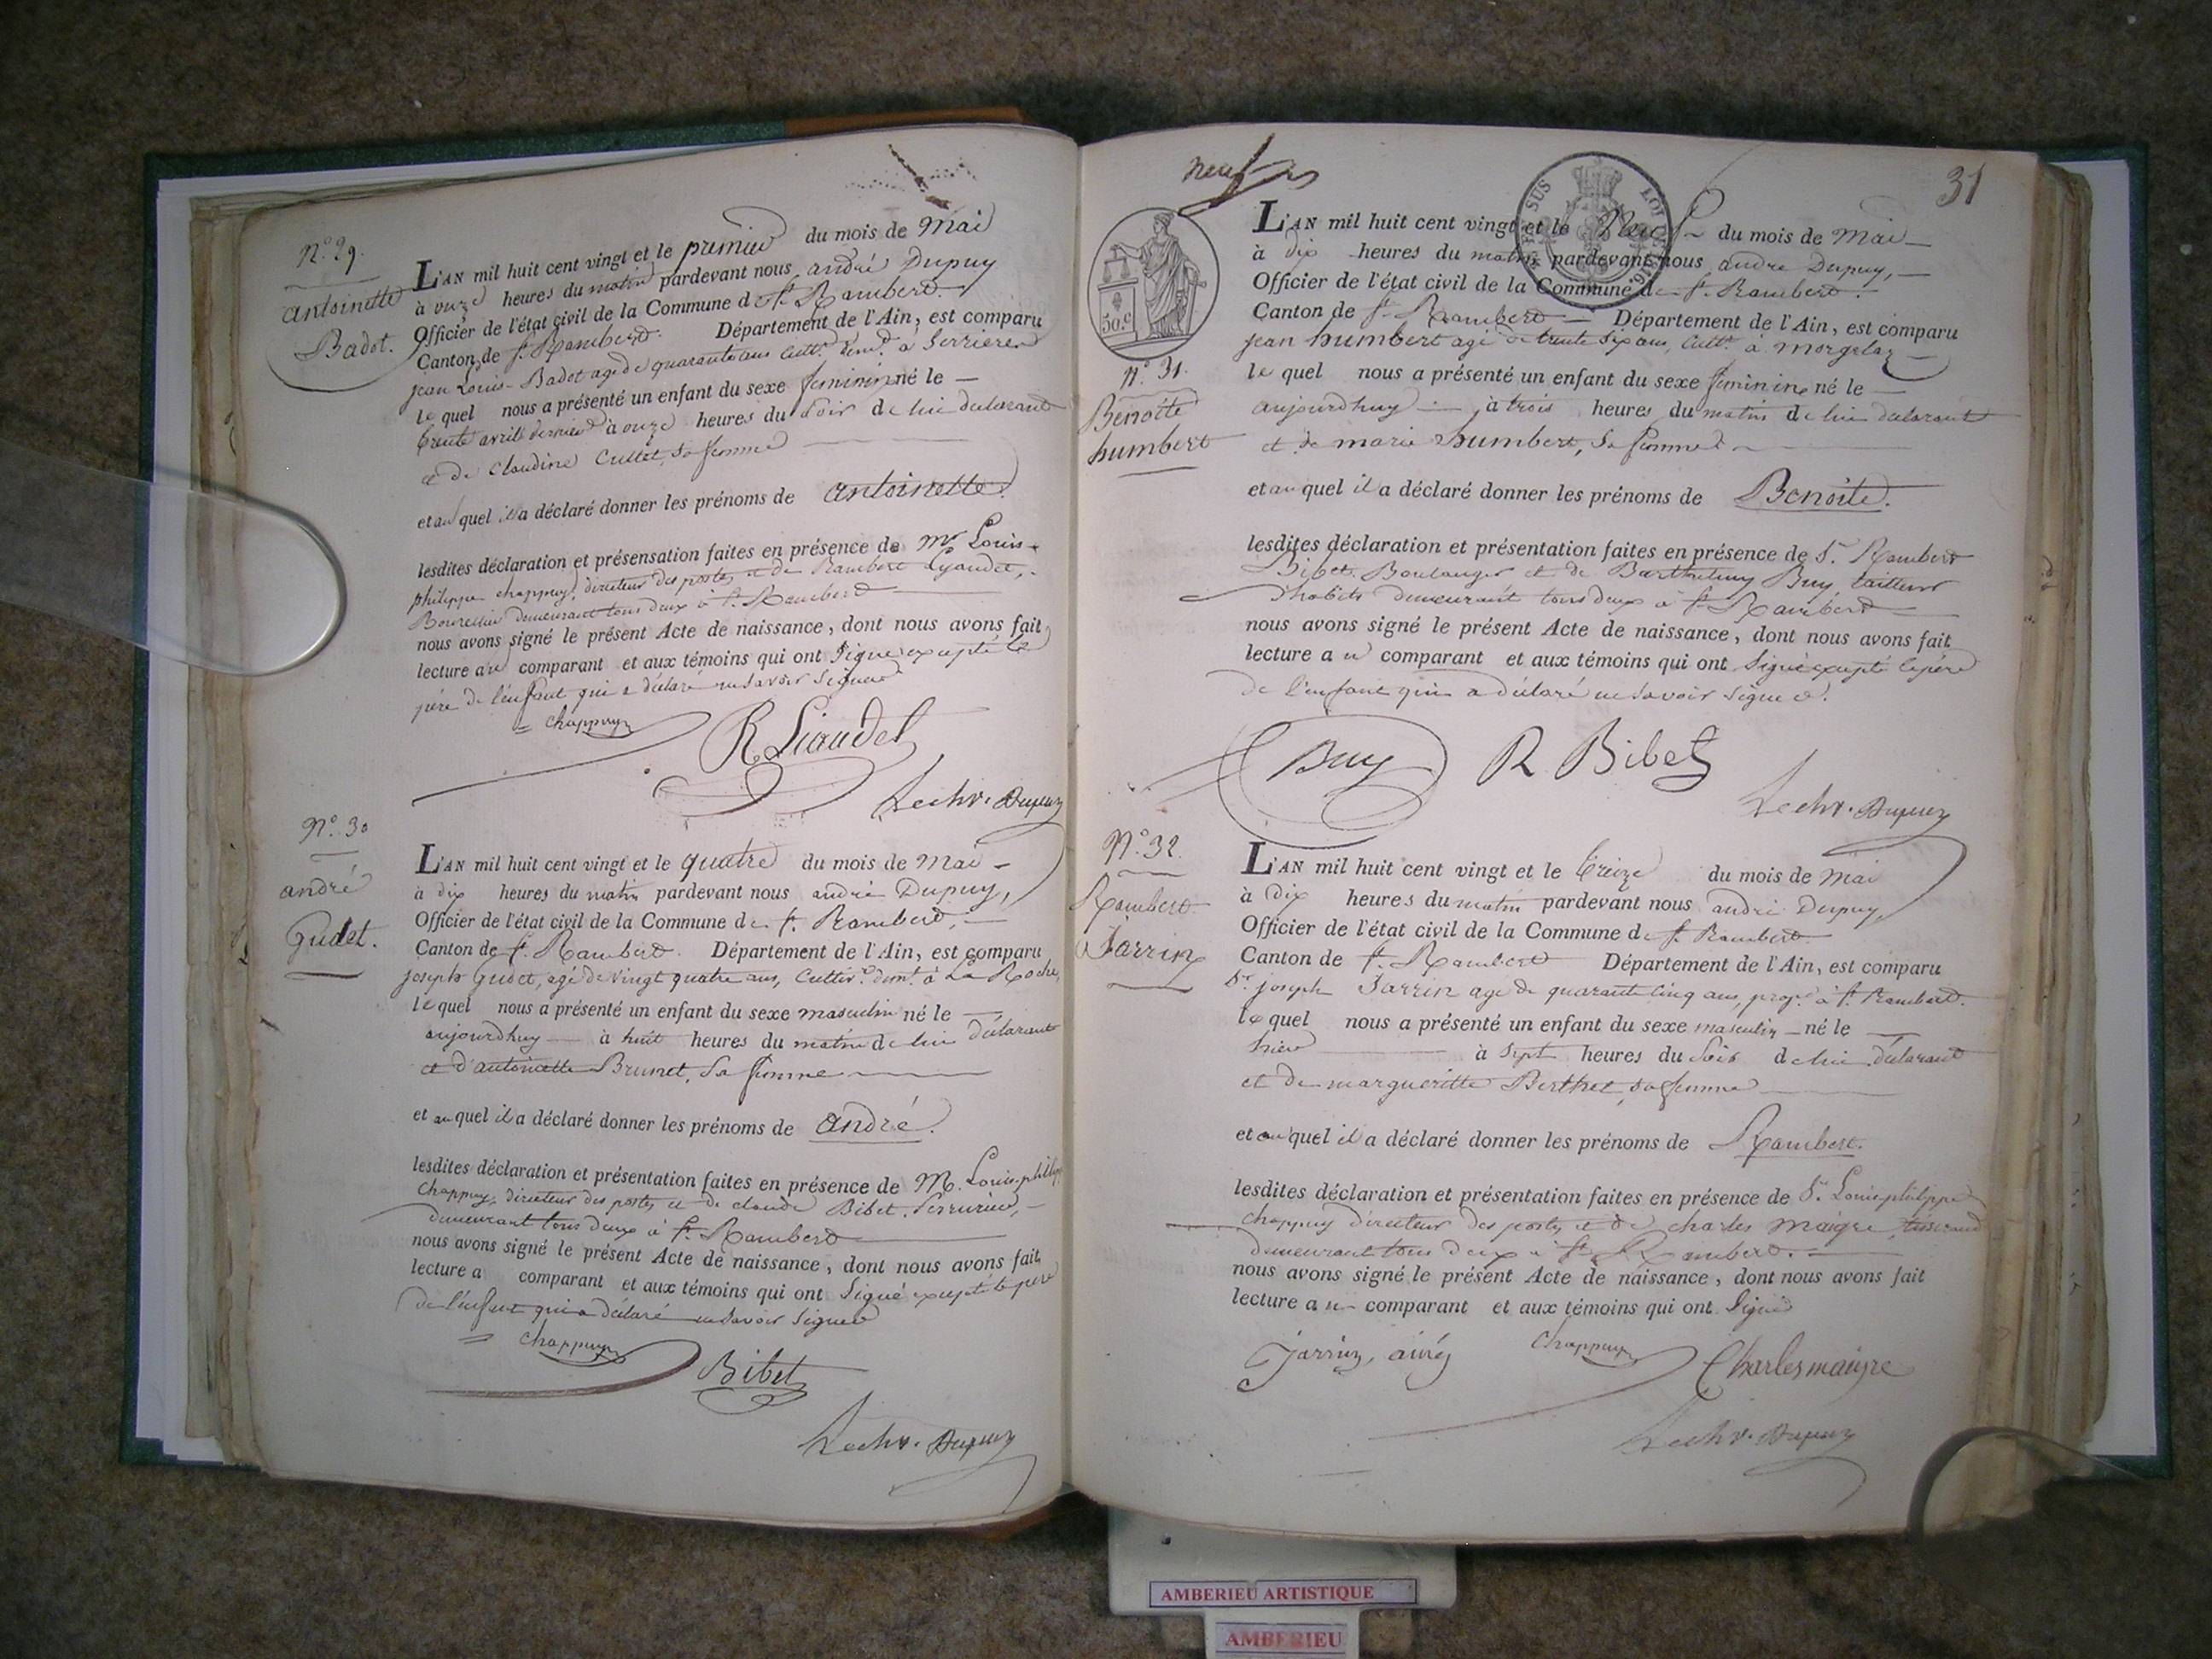 N.° 29.
antoinette
Badet.
L'AN mil huit cent vingt et le premier du mois de Mai
à onze heures du matin pardevant nous andré Dupuy
Officier de l'état civil de la Commune de St. Rambert.
Canton de St. Rambert. Département de l'Ain, est comparu
jean Louis Badet agé de quarante ans cultr. demt. a Serrieres
lequel nous a présenté un enfant du sexe feminin né le —
trente avril dernier à onze heures du soir de lui declarant
et de Claudine Cullet, sa femme
et auquel il a déclaré donner les prénoms de antoinette.
lesdites déclaration et présensation faites en présence de Mr Louis
philippe chappuy, directeur des postes et de Rambert Lyaudet,
Bourrelier demeurant tous deux à St. Rambert
nous avons signé le présent Acte de naissance, dont nous avons fait
lecture au comparant et aux témoins qui ont signé excepté le
père de l'enfant qui a déclaré ne savoir signer
chappuy
R Liaudet
Le chr. Dupuy
N.° 30
andré
Gudet.
L'AN mil huit cent vingt et le quatre du mois de Mai —
à dix heures du matin pardevant nous andré Dupuy,
Officier de l'état civil de la Commune de St. Rambert,
Canton de St. Rambert. Département de l'Ain, est comparu
joseph Gudet, agé de vingt quatre ans, cultivr. demt. à La Roche,
lequel nous a présenté un enfant du sexe masculin né le —
aujourdhuy — à huit heures du matin de lui déclarant
et d'antoinette Brunet, sa femme
et auquel il a déclaré donner les prénoms de andré.
lesdites déclaration et présentation faites en présence de M. Louis philippe
Chappuy, directeur des postes et de claude Bibet, serrurier,
demeurant tous deux à St. Rambert
nous avons signé le présent Acte de naissance, dont nous avons fait
lecture a comparant et aux témoins qui ont signé excepté le père
de l'enfant qui a déclaré ne savoir signer
chappuy
Bibet
Le chr. Dupuy
neuf
31
SUS LOI 1816
50.c
N.° 31.
Benoite
humbert
L'AN mil huit cent vingt et le Neuf du mois de Mai —
à dix heures du matin pardevant nous andré Dupuy, —
Officier de l'état civil de la Commune de St. Rambert.
Canton de St. Rambert — Département de l'Ain, est comparu
jean humbert agé de trente six ans, cultr. à Morgelaz —
lequel nous a présenté un enfant du sexe feminin né le —
aujourdhuy — à trois heures du matin de lui déclarant
et de marie humbert, sa femme
et auquel il a déclaré donner les prénoms de Benoite.
lesdites déclaration et présentation faites en présence de Sr. Rambert
Bibet Boulanger et de Barthelemy Buy tailleur
d'habits demeurant tous deux à St. Rambert
nous avons signé le présent Acte de naissance, dont nous avons fait
lecture au comparant et aux témoins qui ont signé excepté le père
de l'enfant qui a déclaré ne savoir signer.
Buy
R Bibet
Le chr. Dupuy
N.° 32.
Rambert
Jarrin
L'AN mil huit cent vingt et le treize du mois de Mai
à dix heures du matin pardevant nous andré Dupuy,
Officier de l'état civil de la Commune de St. Rambert
Canton de St. Rambert Département de l'Ain, est comparu
Sr. joseph Jarrin agé de quarante cinq ans, propr. à St. Rambert.
lequel nous a présenté un enfant du sexe masculin né le —
hier — à sept heures du soir de lui déclarant
et de margueritte Berthet, sa femme
et auquel il a déclaré donner les prénoms de Rambert.
lesdites déclaration et présentation faites en présence de Sr. Louis philippe
chappuy directeur des postes et de charles maigre, tisserand
demeurant tous deux à St. Rambert. —
nous avons signé le présent Acte de naissance, dont nous avons fait
lecture au comparant et aux témoins qui ont signé
Jarrin, ainé
Chappuy
Charles maigre
Le chr. Dupuy
AMBERIEU ARTISTIQUE
AMBERIEU